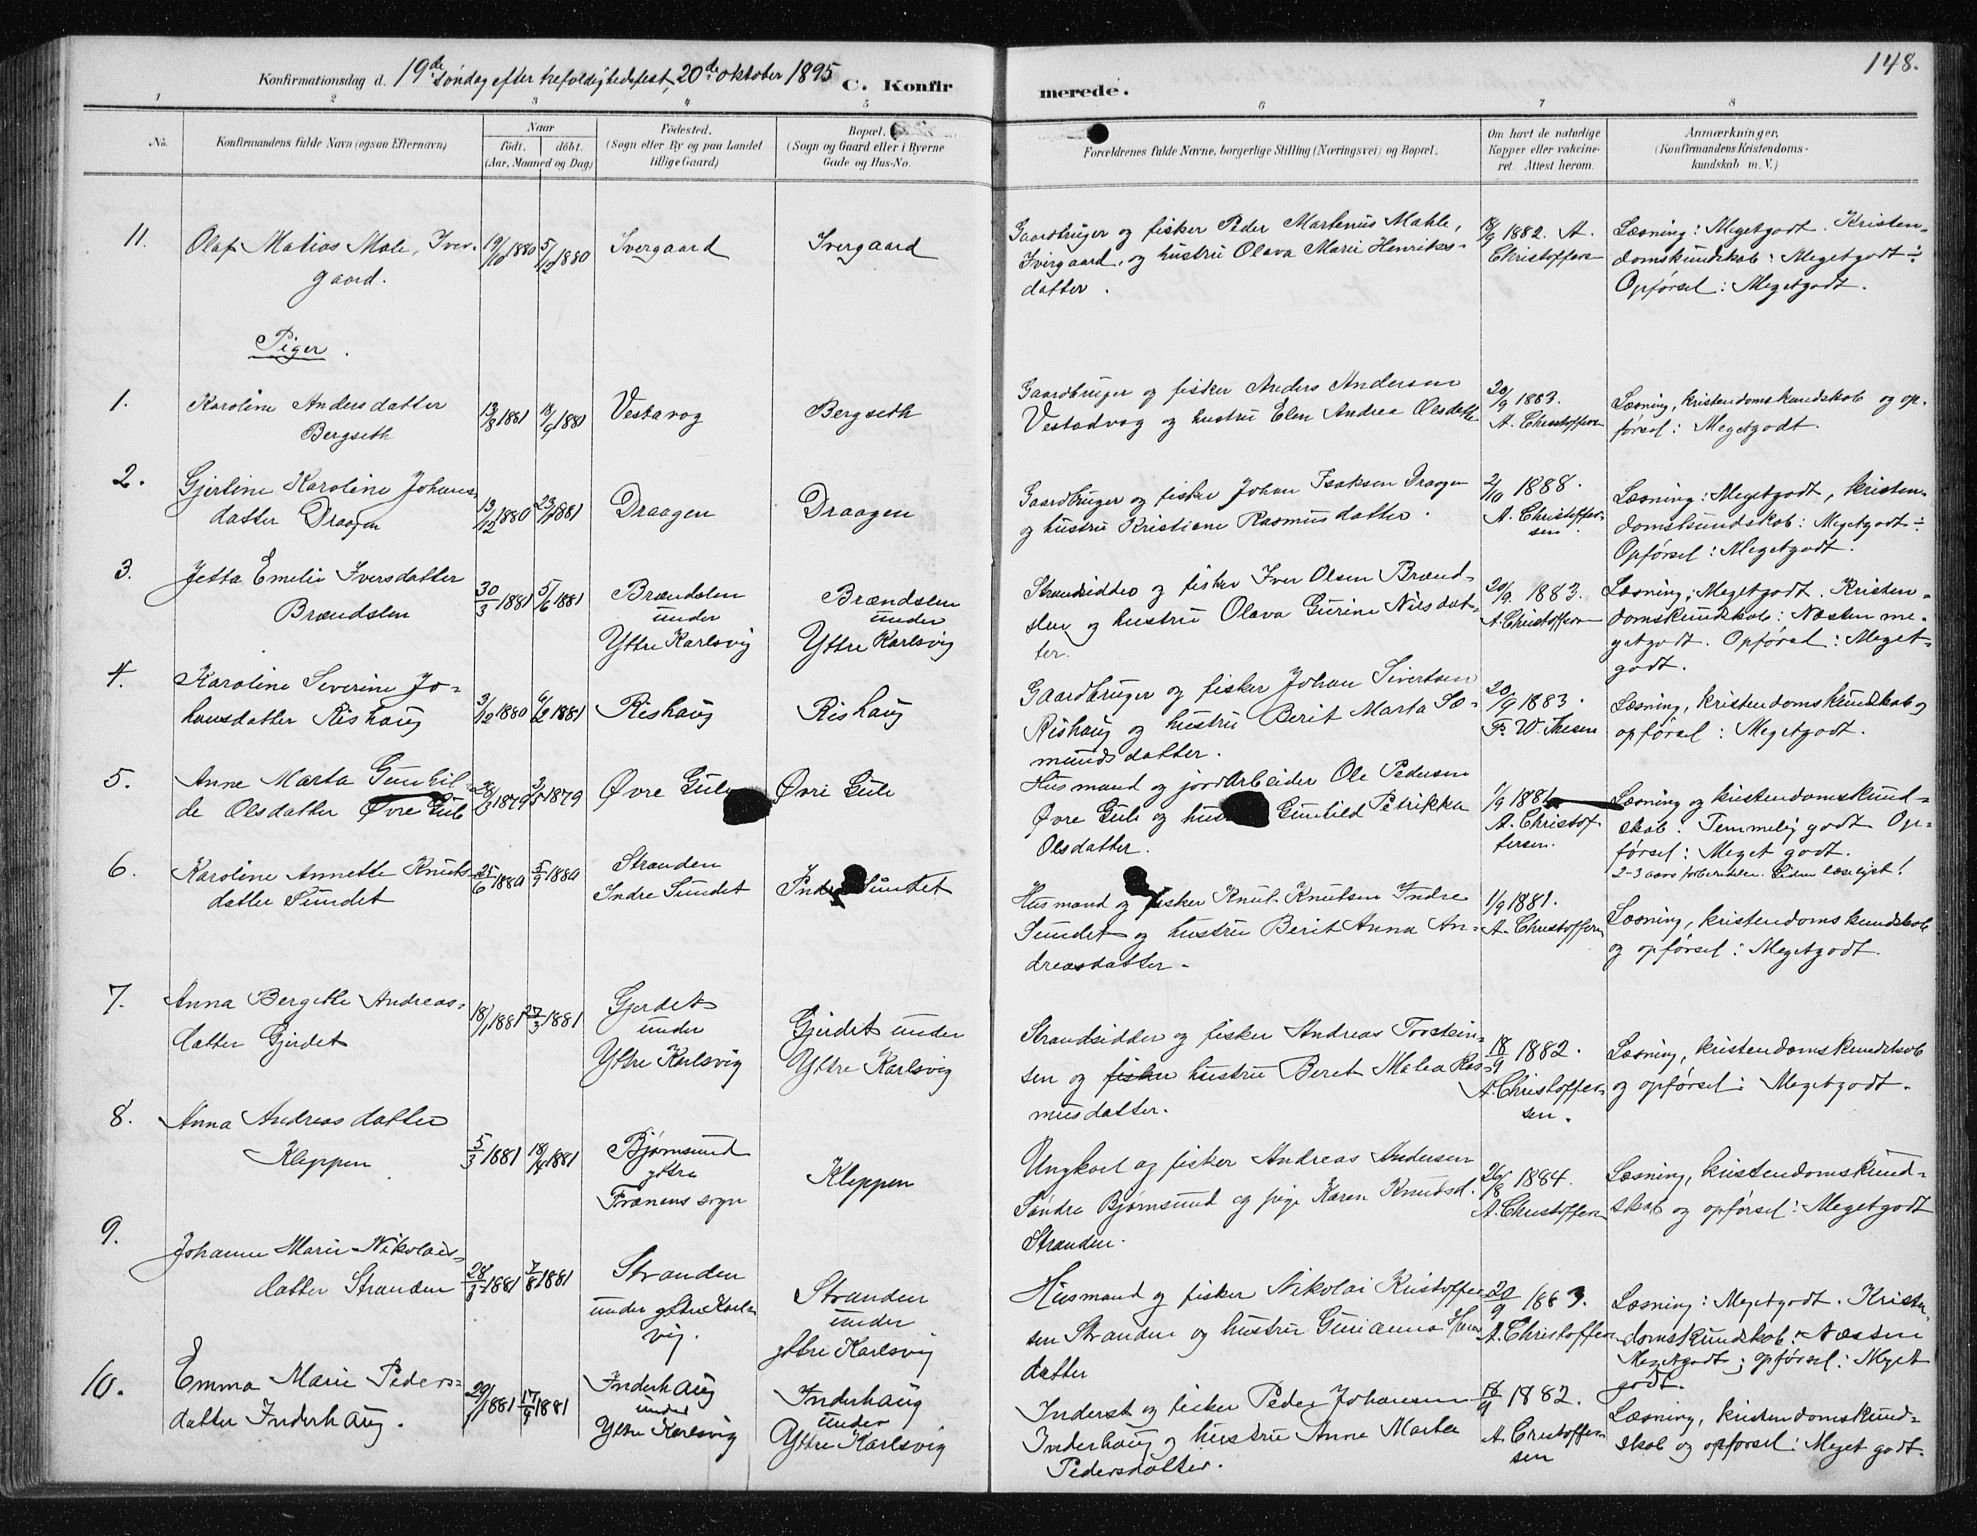 148.
Konfirmationsdag d. 19de søndag efter trefoldighedsfest, 20de oktober 1895
C. Konfir merede.
1 2 3 4 5 6 7 8
No.
Konfirmandens fulde Navn (ogsaa Efternavn)
Naar
født. døbt.
(Aar, Maaned og Dag)
Fødested.
(Sogn eller By og paa Landet
tillige Gaard)
Bopæl.
(Sogn og Gaard eller i Byerne
Gade og Hus-No.
Forældrenes fulde Navne, borgerlige Stilling (Næringsvei) og Bopæl.
Om havt de naturlige
Kopper eller vakcine-
ret. Attest herom.
Anmærkninger.
(Konfirmandens Kristendoms-
kundskab m. V.)
11.
Olaf Matias Male, Iver-
gaard.
19/10 1880
5/12 1880
Ivergaard
Ivergaard
Gaardbruger og fisker Peder Martenius Mahle,
Ivergaard, og hustru Olava Marie Henriks-
datter.
18/9 1882. A.
Christoffersen
Læsning: Megetgodt. Kristen-
domskundskab: Megetgodt ÷
Opførsel: Megetgodt.
Piger.
1.
Karoline Andersdatter
Bergseth
13/8 1881
18/9 1881
Vestavog
Bergseth
Gaardbruger og fisker Anders Andersen
Vestadvog og hustru Elen Andrea Olsdatter
20/9 1883.
A. Christoffersen
Læsning, kristendomskundskab og op-
førsel: Megetgodt.
2.
Gjertine Karoline Johans
datter Draagen
13/12 1880
23/1 1881
Draagen
Draagen
Gaardbruger og fisker Johan Isaksen Draagen
og hustru Kristiane Rasmusdatter.
2/10 1888.
A. Christoffer-
sen.
Læsning: Megetgodt, kristen-
domskundskab: Megetgodt ÷
Opførsel: Megetgodt.
3.
Jetta Emelie Iversdatter
Brændslen
30/3 1881
5/6 1881
Brændslen
under
Yttre Karlsvig
Brændslen
under
Yttre Karlsvig
Strandsidder og fisker Iver Olsen Brænd-
slen og hustru Olava Gurine Nilsdat-
ter.
20/9. 1883.
A. Christoffersen
Læsning: Megetgodt. Kristen-
domskundskab: Næsten me-
getgodt. Opførsel: Meget-
godt.
4.
Karoline Severine Jo-
hansdatter Rishaug
3/12 1880
6/2 1881
Rishaug
Rishaug
Gaardbruger og fisker Johan Sivertsen
Rishaug og hustru Berit Marta Sæ-
mundsdatter.
20/9 1883.
Fr. W. Thesen
Læsning, kristendomskundskab og
opførsel: Megetgodt.
5.
Anne Marta Gunhil-
de Olsdatter Øvre Gule
1879
1879
Øvre Gule
Øvre Gule
Husmand og jordarbeider Ole Pedersen
Øvre Gule og Gunhild Petrikka
Olsdatter.
1/9 1881
A. Christof
fersen.
Læsning og kristendomskund-
skab: Temmelig godt. Op-
førsel: Meget godt.
2-3 aars forberedelse. Liden læselyst!
6.
Karoline Annette Knuts-
datter Sundet
25/6 1880
5/9 1880
Stranden
Indre Sundet
Indre Sundet
Husmand og fisker Knut Knutsen Indre
Sundet og hustru Berit Anna An-
dreasdatter.
1/9 1881.
A. Christoffersen
Læsning, kristendomskundskab
og opførsel: Megetgodt.
7.
Anna Bergitte Andreas-
datter Gjerdet
18/1 1881
27/3 1881
Gjerdet
under
Yttre Karlsvig
Gjerdet under
Yttre Karlsvig
Strandsidder og fisker Andreas Torstein-
sen og fisker hustru Beret Malea Ras-
musdatter.
18/9 1882.
A. Christoffer-
sen.
Læsning, kristendomskundskab
og opførsel: Megetgodt.
8.
Anna Andreasdatter
Kleppen
5/3 1881
18/4 1881
Bjørnsund
yttre
Frænens sogn
Kleppen
Ungkarl og fisker Andreas Andersen
Søndre Bjørnsund og pige Karen Knudsd.
Stranden.
26/8 1884.
A. Christoffersen
Læsning, kristendomskund-
skab og opførsel: Megetgodt
9.
Johanne Marie Nikolais-
datter Stranden
28/3 1881
7/8 1881
Stranden
under yttre Karls-
vig.
Stranden
under
yttre Karlsvig
Husmand og fisker Nikolai Kristoffer-
sen Stranden og hustru Gurianna
datter
20/9 1883.
A. Christoffersen
Læsning: Megetgodt. Kristen-
domskundskab: Næsten
Megetgodt; opførsel: Meget
godt.
10.
Emma Marie Peders-
datter Inderhaug.
29/1 1881
17/4 1881
Inderhaug
under
Yttre Karlsvig
Inderhaug
under
Yttre Karlsvig
Inderst og fisker Peder Johansen
Inderhaug og hustru Anne Marta
Pedersdatter.
18/9 1882.
A. Christoffer
sen
Læsning, kristendomskund-
skab og opførsel: Meget godt.